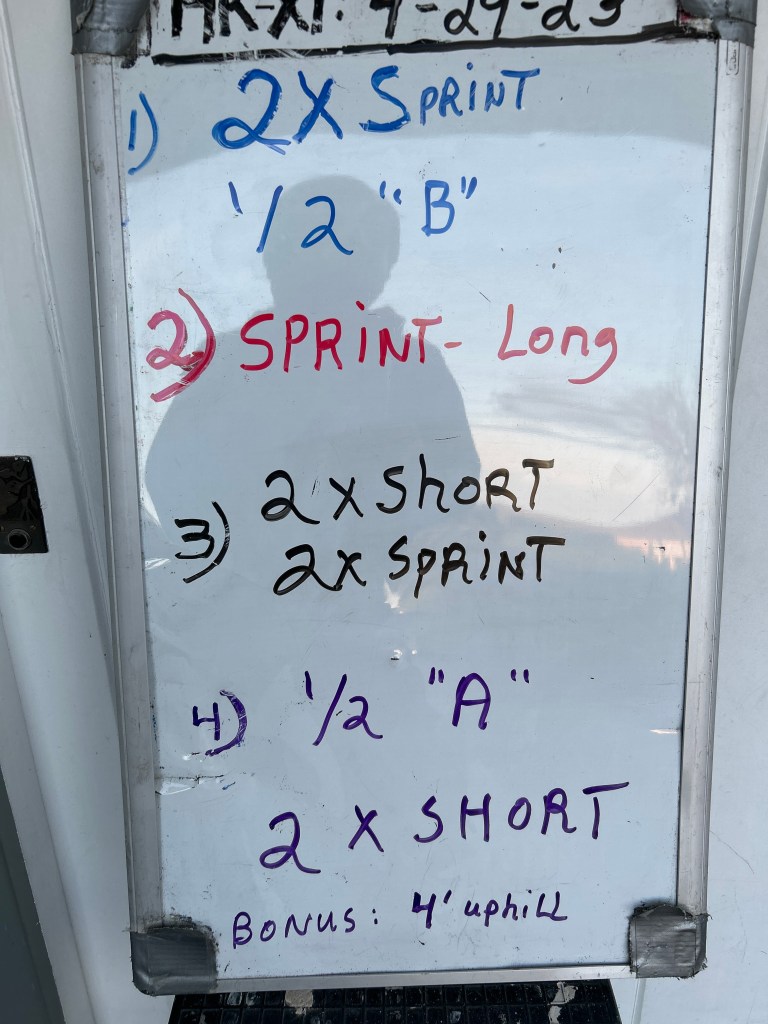 4-29-23
1) 2X SPRINT
1/2 "B"
2) SPRINT- Long
3) 2x ShORT
2x SPRINT
4) 1/2 "A"
2 X SHORT
BONUS: 4' uphill